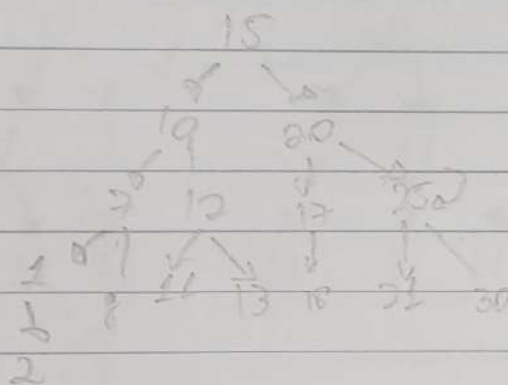 15
10 20
7 12 17 25
1 8 11 13 18 21 30
2